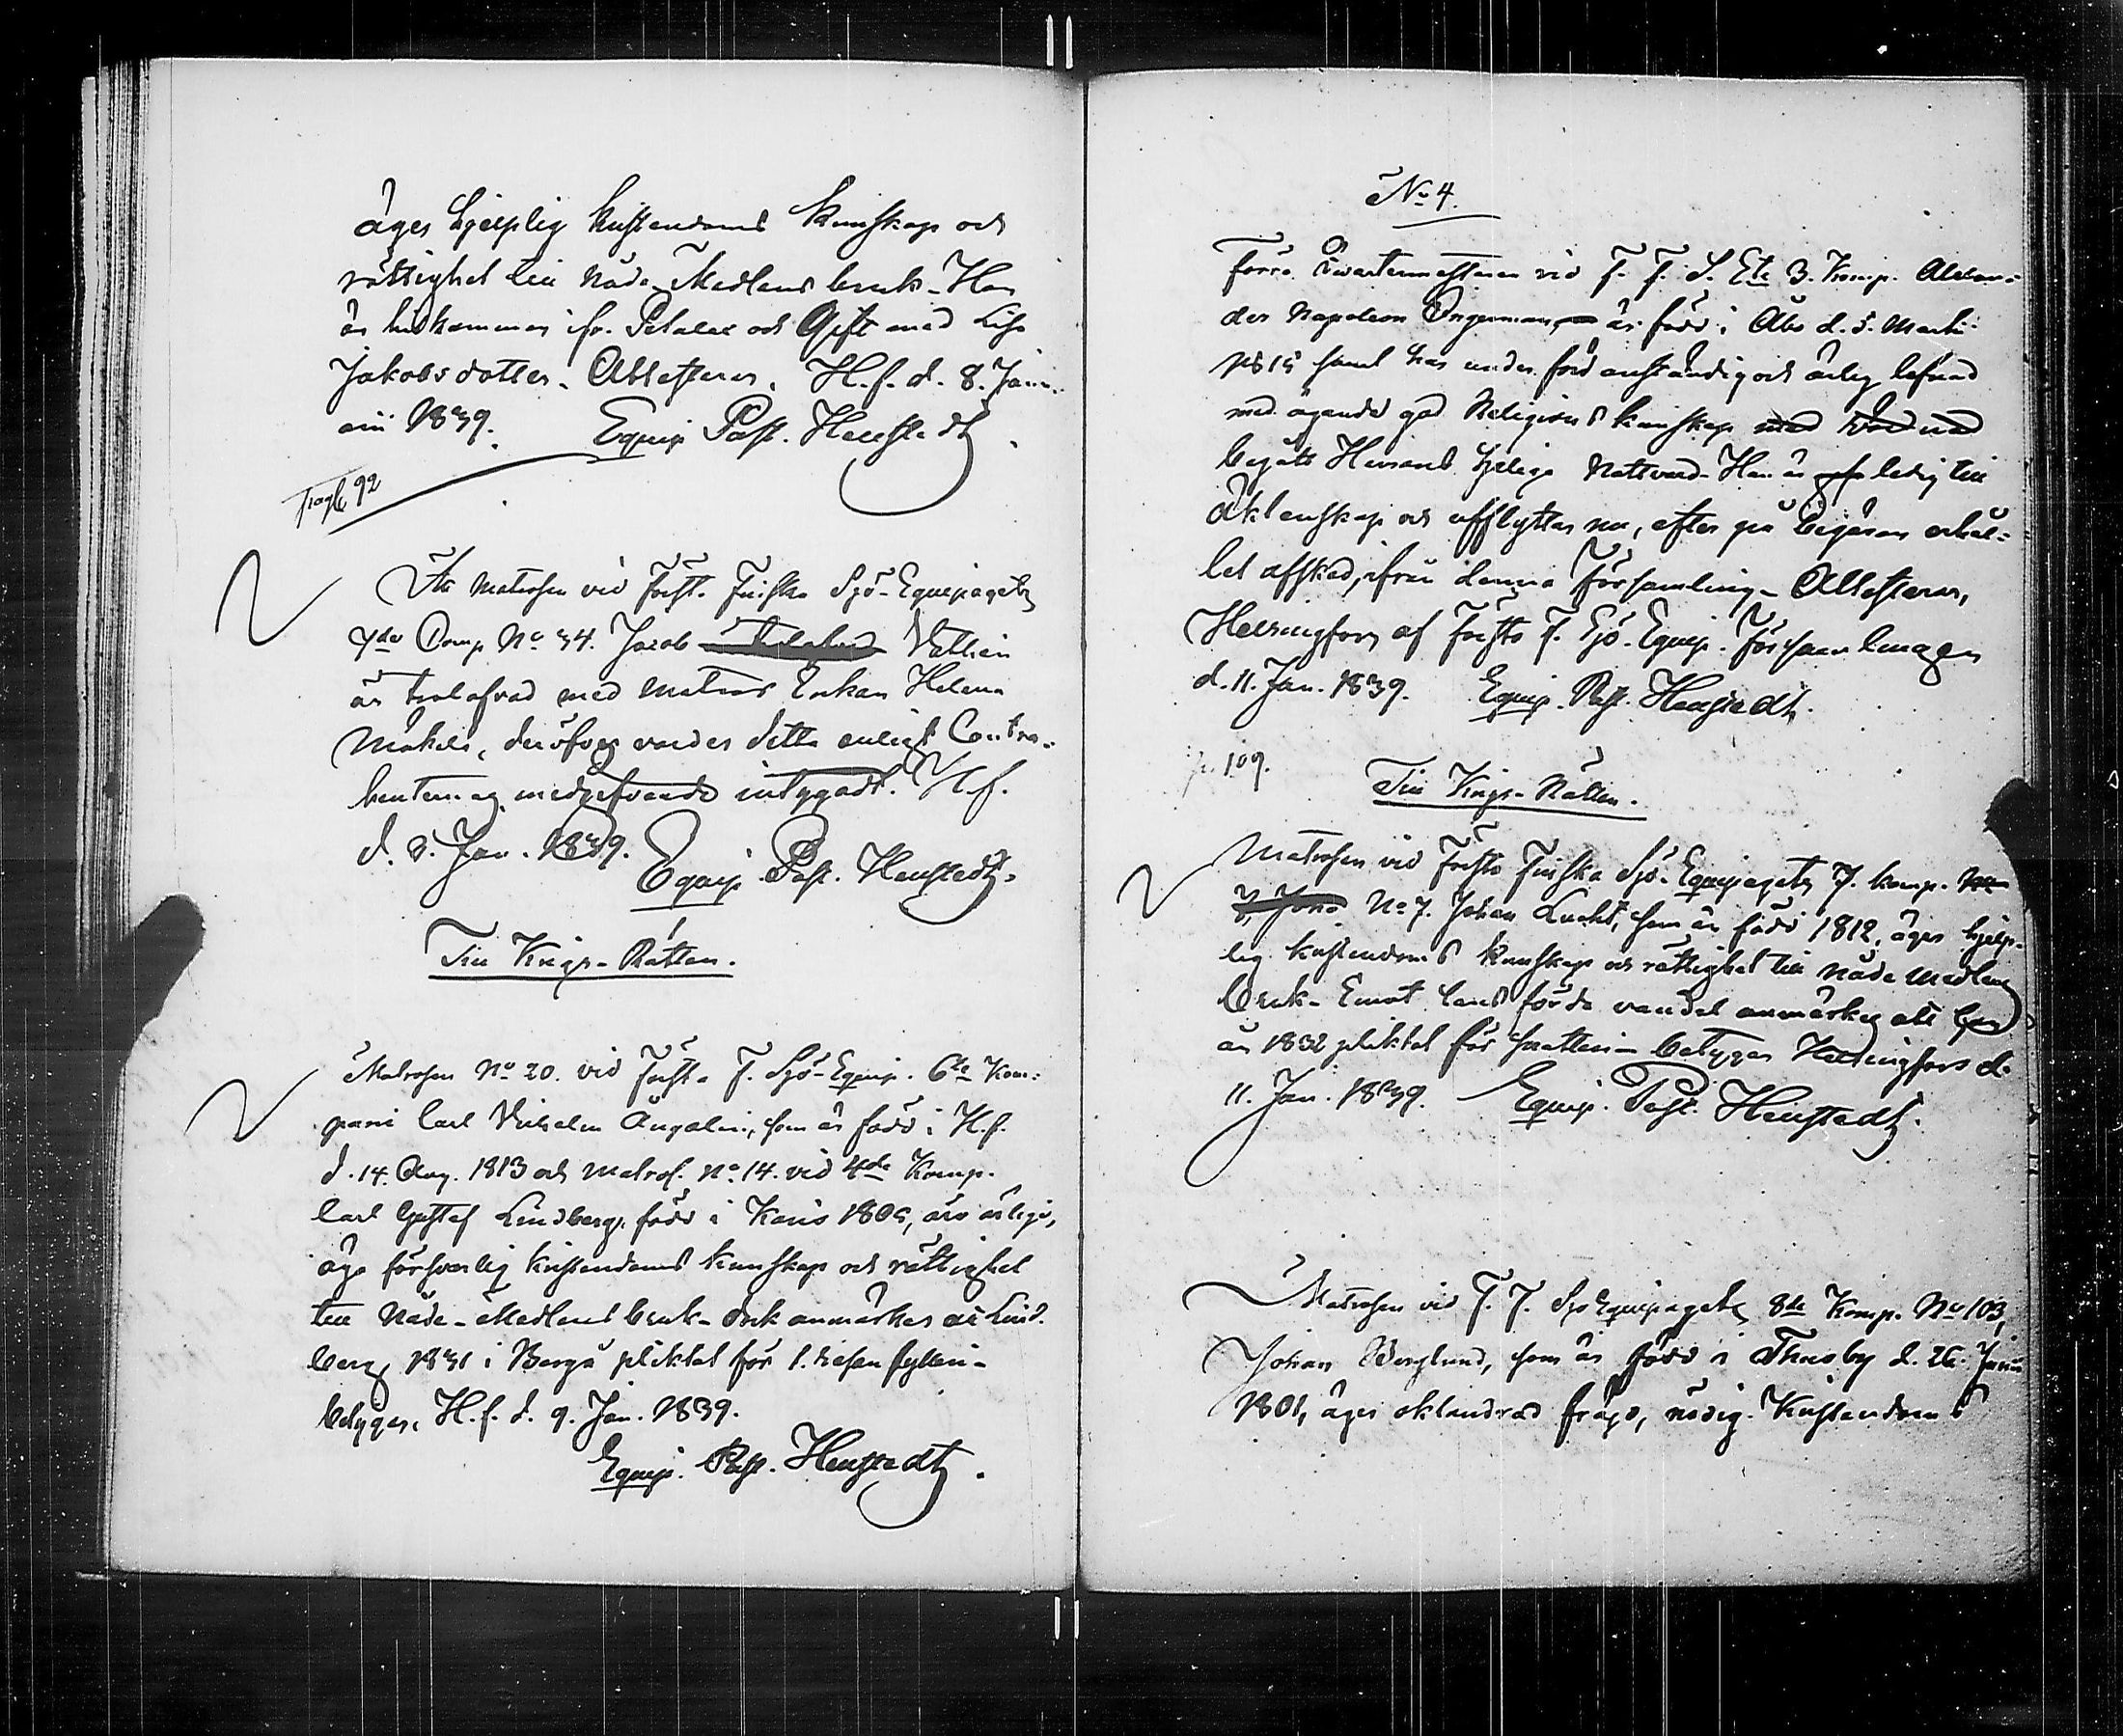 äger hjelplig kristendoms kunskap och
rättighet till Nåde-Medlens bruk. Han
är hitkommen ifr. Petalax och Gift med Lisa
Jakobsdotter. Attesterar, H.f. d. 8. Janu-
arii 1839. Equip. Past. Henstedt.
92
Att Matrosen vid Första Finska Sjö-Equipagets
7de Comp. No 34. Jacob Vatlin
är trolofvad med Matros Enkan Helena
Mäkelä, deröfver varder detta enligt Contra-
henternas medgifvande intygadt. H.f.
d. 8. Jan. 1839. Equip. Past. Henstedt.
Till Krigs-Rätten.
Matrosen No 20. vid Första F. Sjö-Equip. 6te Kom-
pani Carl Vilhelm Ångalin, som är född i H.f.
d. 14. Aug. 1813 och Matros. No 14. vid 4de Komp.
Carl Gustaf Lindberg, född i Karis 1805, äro ärlige,
äga försvarlig kristendoms kunskap och rättighet
till Nåde-Medlens bruk. Dock anmärkes att Lind-
berg 1831 i Borgå pliktat för 1. resan fylleri-
betygar, H.f. d. 9. Jan. 1839.
Equip. Past. Henstedt.
No 4.
Förre Qvartermästaren vid F. F. S. Ets 3. Komp. Alexan-
der Napoleon Ungerman, är född i Åbo d. 5. Martii
1815 samt har under förd anständig och ärlig lefnad
med ägande god Religions kunskap med vördnad
begått Herrans heliga Nattvard. Han är ledig till
äktenskap och afflyttar nu, efter på begäran erhål-
let afsked, ifrån denna Församling. Attesterar,
Helsingfors af Första F. Sjö-Equip. Församlingen
d. 11. Jan. 1839. Equip. Past. Henstedt.
p. 109.
Till Krigs-Rätten.
Matrosen vid Första Finska Sjö-Equipagets 7. Komp.
No 7. Johan Lucht, som är född 1812, äger hjelp-
lig kristendoms kunskap och rättighet till Nåde Medlens
bruk. Emot hans förda vandel anmärkes att han
år 1832 pliktat för snatteri- betygar Helsingfors d.
11. Jan. 1839. Equip. Past. Henstedt.
Matrosen vid F. F. Sjö Equipagets 8de Komp. No 103,
Johan Berglund, som är född i Thusby d. 26. Junii
1801, äger oklandrad frägd, nödig Kristendoms